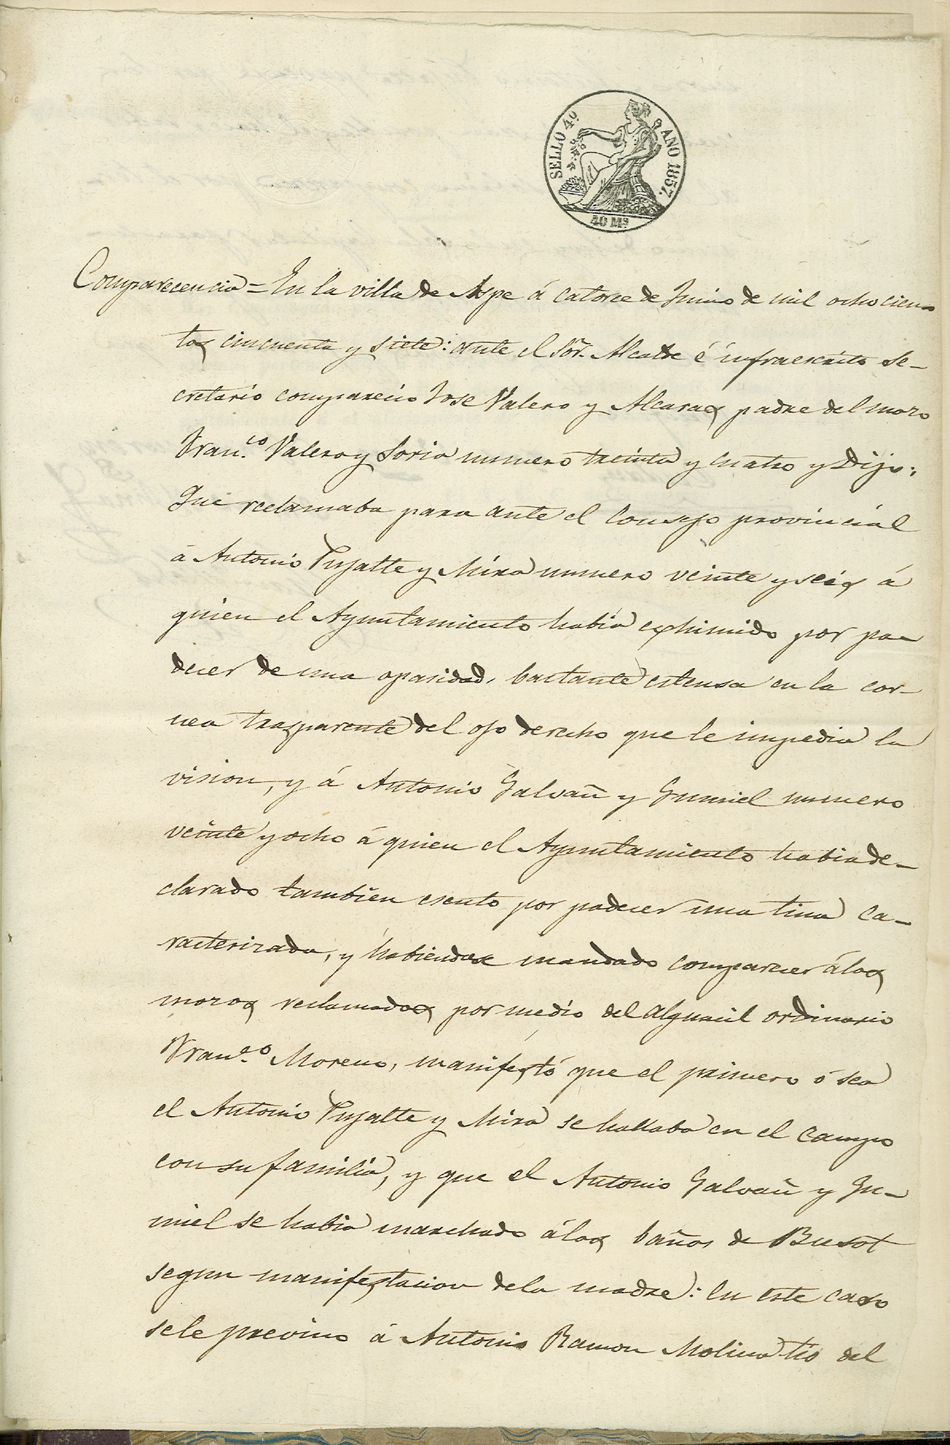 SELLO 4º AÑO 1857.
40 Ms
Comparecencia = En la villa de Aspe á catorce de Junio de mil ocho cien-
tos cincuenta y siete: ante el Sor. Alcalde é infraescrito Se-
cretario comparecio Jose Valero y Alcaras padre del mozo
Fran.co Valero y Soria numero treinta y cuatro y Dijo:
Que reclamaba para ante el Consejo provincial
á Antonio Pujalte y Mira numero veinte y seis á
quien el Ayuntamiento habia eximido por pa-
decer de una opasidad, bastante estensa en la cor-
nea trasparente del ojo derecho que le impedia la
vision, y á Antonio Galvañ y Gumiel numero
veinte y ocho á quien el Ayuntamiento habia de-
clarado tambien esento por padecer una tiña ca-
racterizada, y habiendose mandado comparecer á los
mozos reclamados por medio del alguacil ordinario
Fran.co Moreno, manifestó que el primero ó sea
el Antonio Pujalte y Mira se hallaba en el campo
con su familia, y que el Antonio Galvañ y Gu-
miel se habia marchado á los baños de Busot
segun manifestacion de la madre: En este caso
se le previno á Antonio Ramon Molina tio del